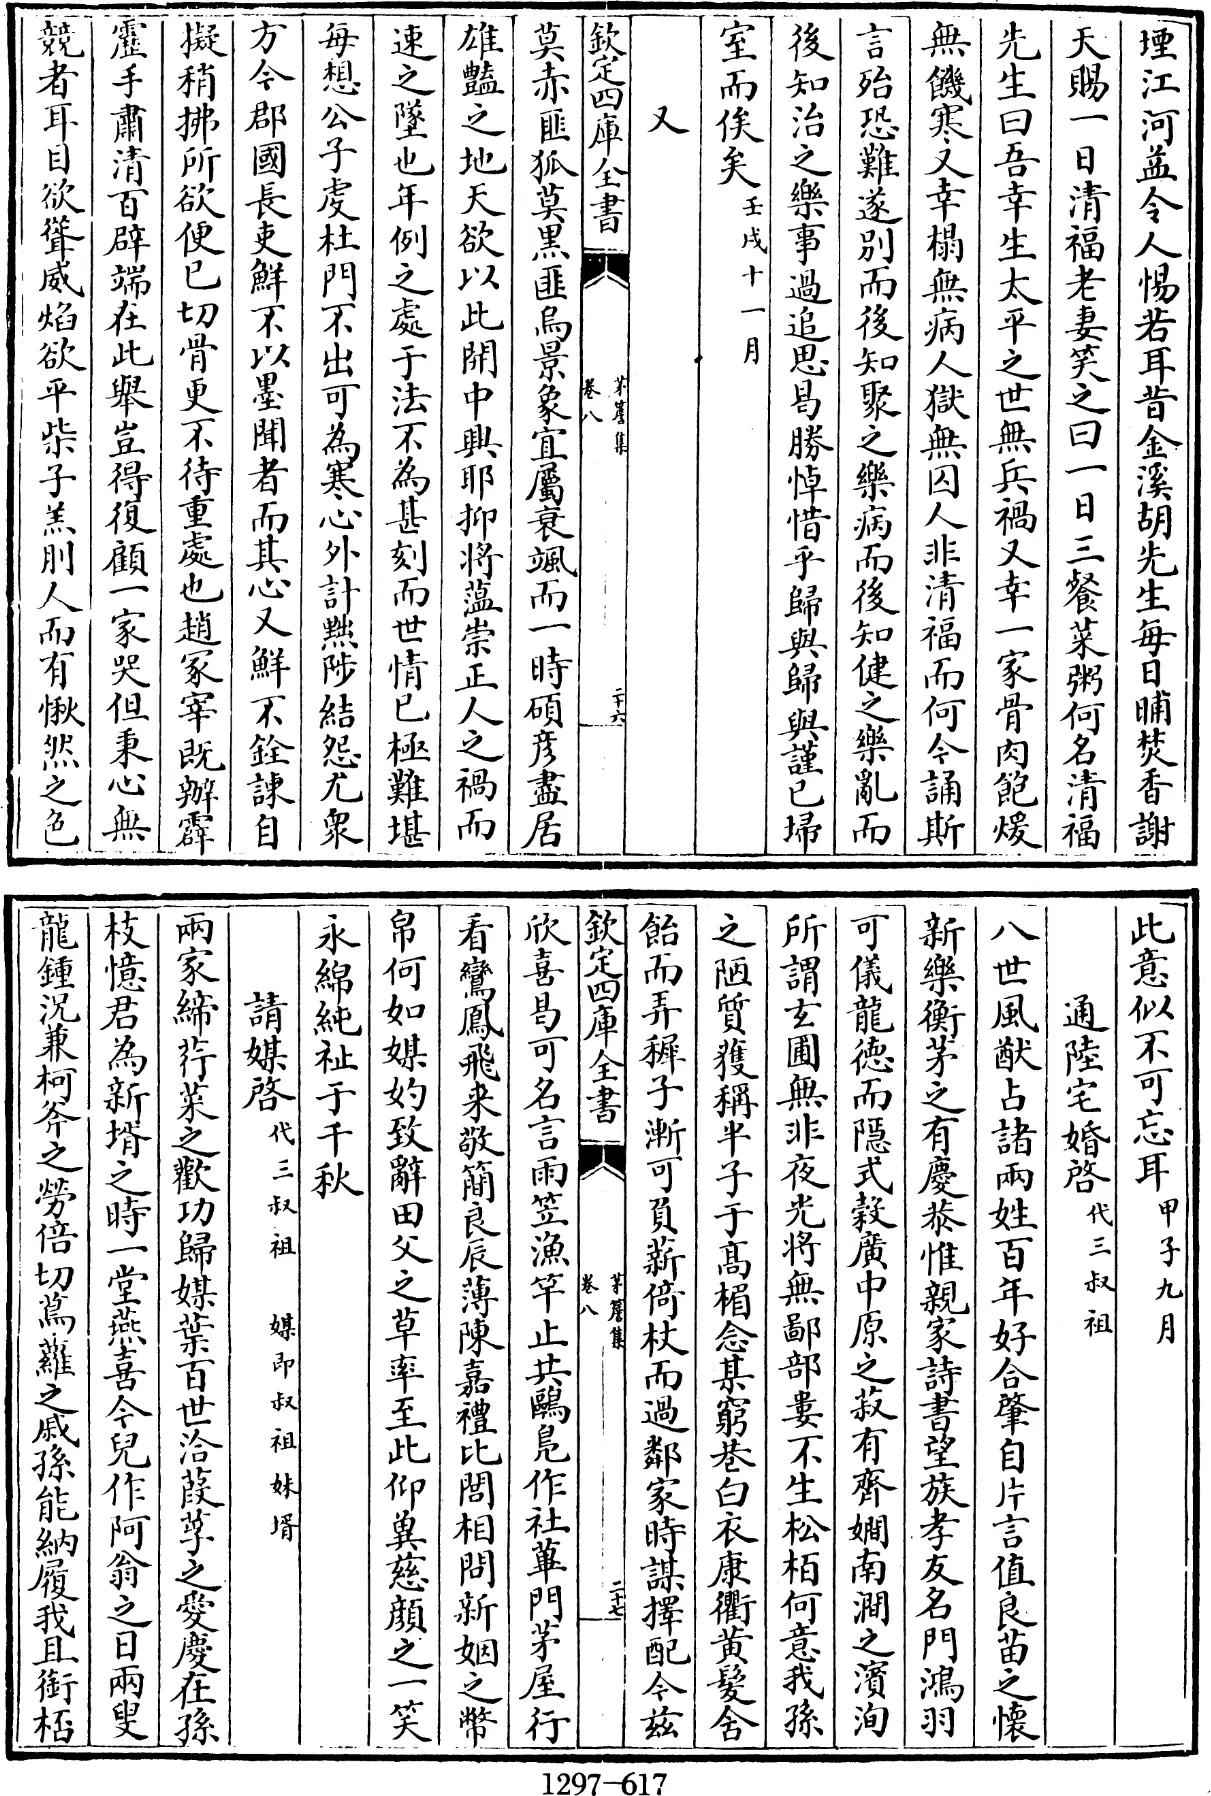 堙江河益令人惕若耳昔金溪胡先生每日晡焚香謝
天賜一日清福老妻笑之曰一日三餐菜粥何名清福
先生曰吾幸生太平之世無兵禍又幸一家骨肉飽煖
無饑寒又幸榻無病人獄無囚人非清福而何今誦斯
言殆恐難遂别而後知聚之樂病而後知健之樂亂而
後知治之樂事過追思曷勝悼惜乎歸與歸與謹已埽
室而俟矣壬戌十一月
又
欽定四庫全書
茅簷集
卷八
二十六
莫赤匪狐莫黒匪烏景象宜屬衰颯而一時碩彦盡居
雄豔之地天欲以此開中興耶抑將藴崇正人之禍而
速之墜也年例之處于法不為甚刻而世情已極難堪
每想公子虔杜門不出可為寒心外計黜陟結怨尤衆
方今郡國長吏鮮不以墨聞者而其心又鮮不銓諫自
擬稍拂所欲便已切骨更不待重處也趙冢宰既辦霹
靂手肅清百辟端在此舉豈得復顧一家哭但秉心無
競者耳目欲聳威焰欲平柴子羔刖人而有愀然之色
此意似不可忘耳甲子九月
通陸宅婚啓代三叔祖
八世風猷占諸兩姓百年好合肇自片言值良苗之懷
新樂衡茅之有慶恭惟親家詩書望族孝友名門鴻羽
可儀龍德而隠式榖廣中原之菽有齊嫺南澗之濱洵
所謂玄圃無非夜光將無鄙部婁不生松栢何意我孫
之陋質獲稱半子于髙楣念某窮巷白衣康衢黄髮含
飴而弄穉子漸可負薪倚杖而過鄰家時謀擇配今兹
欽定四庫全書
茅簷集
卷八
二十七
欣喜曷可名言雨笠漁竿止共鷗鳬作社蓽門茅屋行
看鸞鳳飛来敬簡良辰薄陳嘉禮比閭相問新姻之幣
帛何如媒妁致辭田父之草率至此仰兾慈顔之一笑
永綿純祉于千秋
請媒啓代三叔祖 媒即叔祖妹壻
兩家締荇菜之歡功歸媒葉百世洽葭莩之愛慶在孫
枝憶君為新壻之時一堂燕喜今兒作阿翁之日兩叟
龍鍾況兼柯斧之勞倍切蔦蘿之戚孫能納履我且銜桮
1297-617